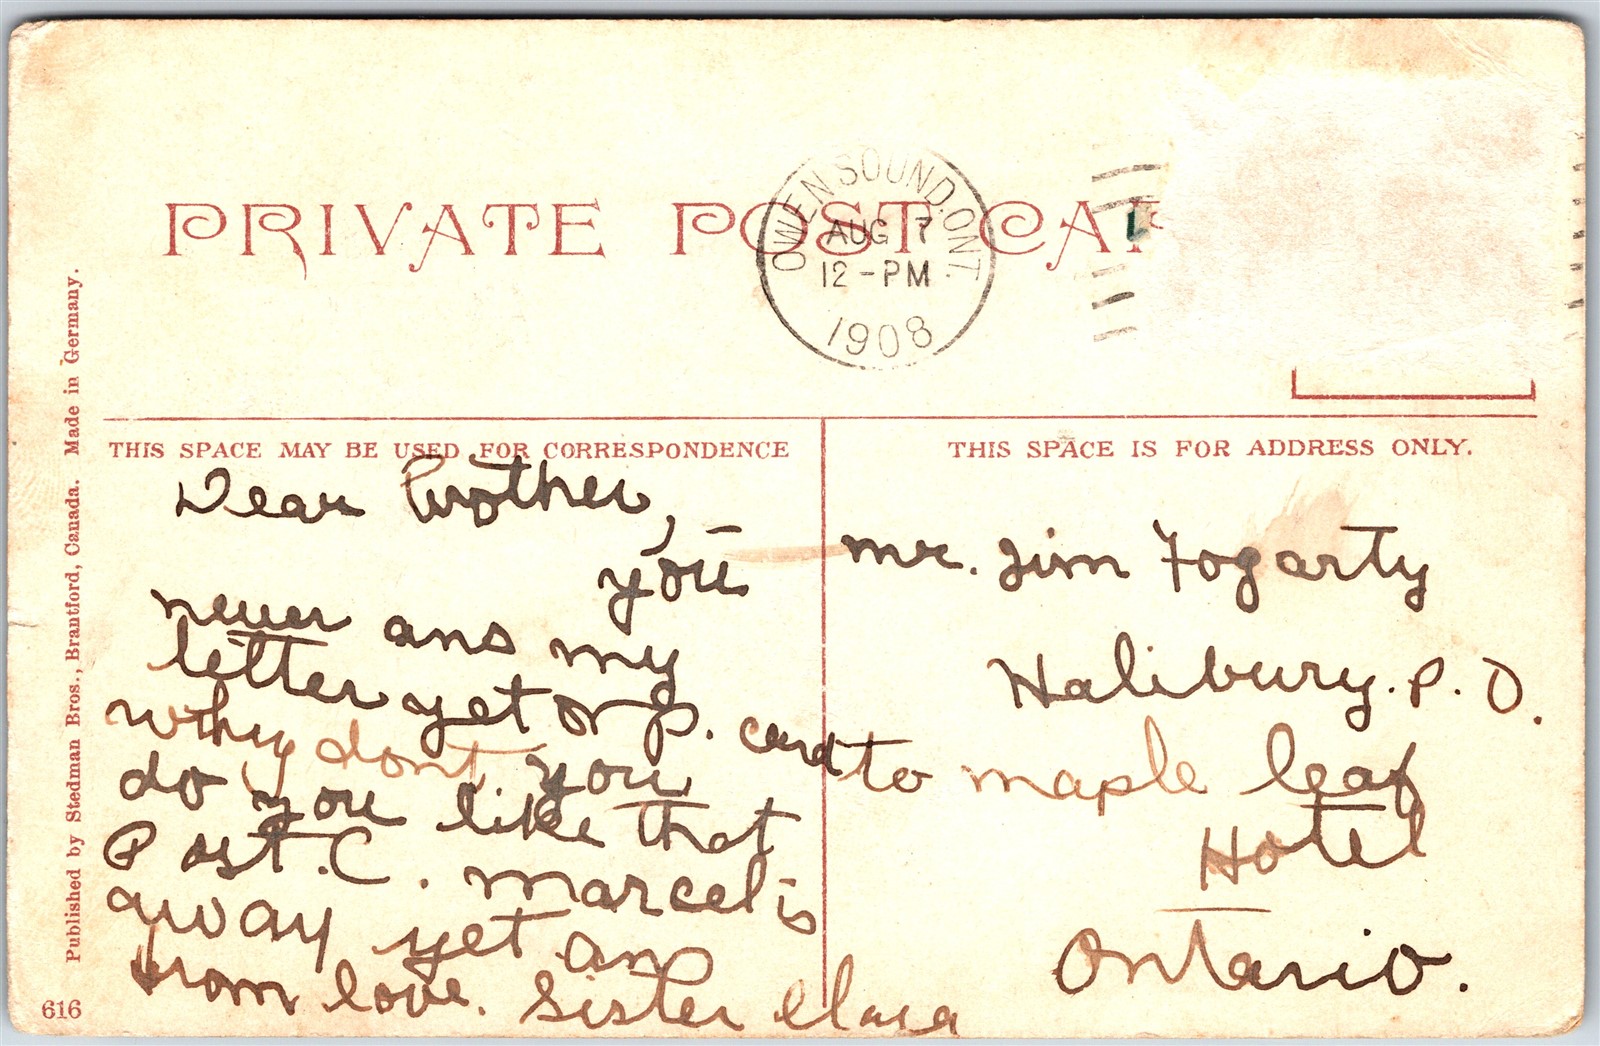 PRIVATE POST CAR
OWEN SOUND, ONT.
AUG 7
12-PM
1908
THIS SPACE MAY BE USED FOR CORRESPONDENCE
Dear Brother,
you
never ans my
letter yet or p. card
why dont you
do you like that
Post.C. marcel is
away yet an
from love. Sister Clara
THIS SPACE IS FOR ADDRESS ONLY.
mr. Jim Fogarty
Halibury. P. O.
to maple leaf
Hotel
Ontario.
Published by Stedman Bros., Brantford, Canada. Made in Germany.
616